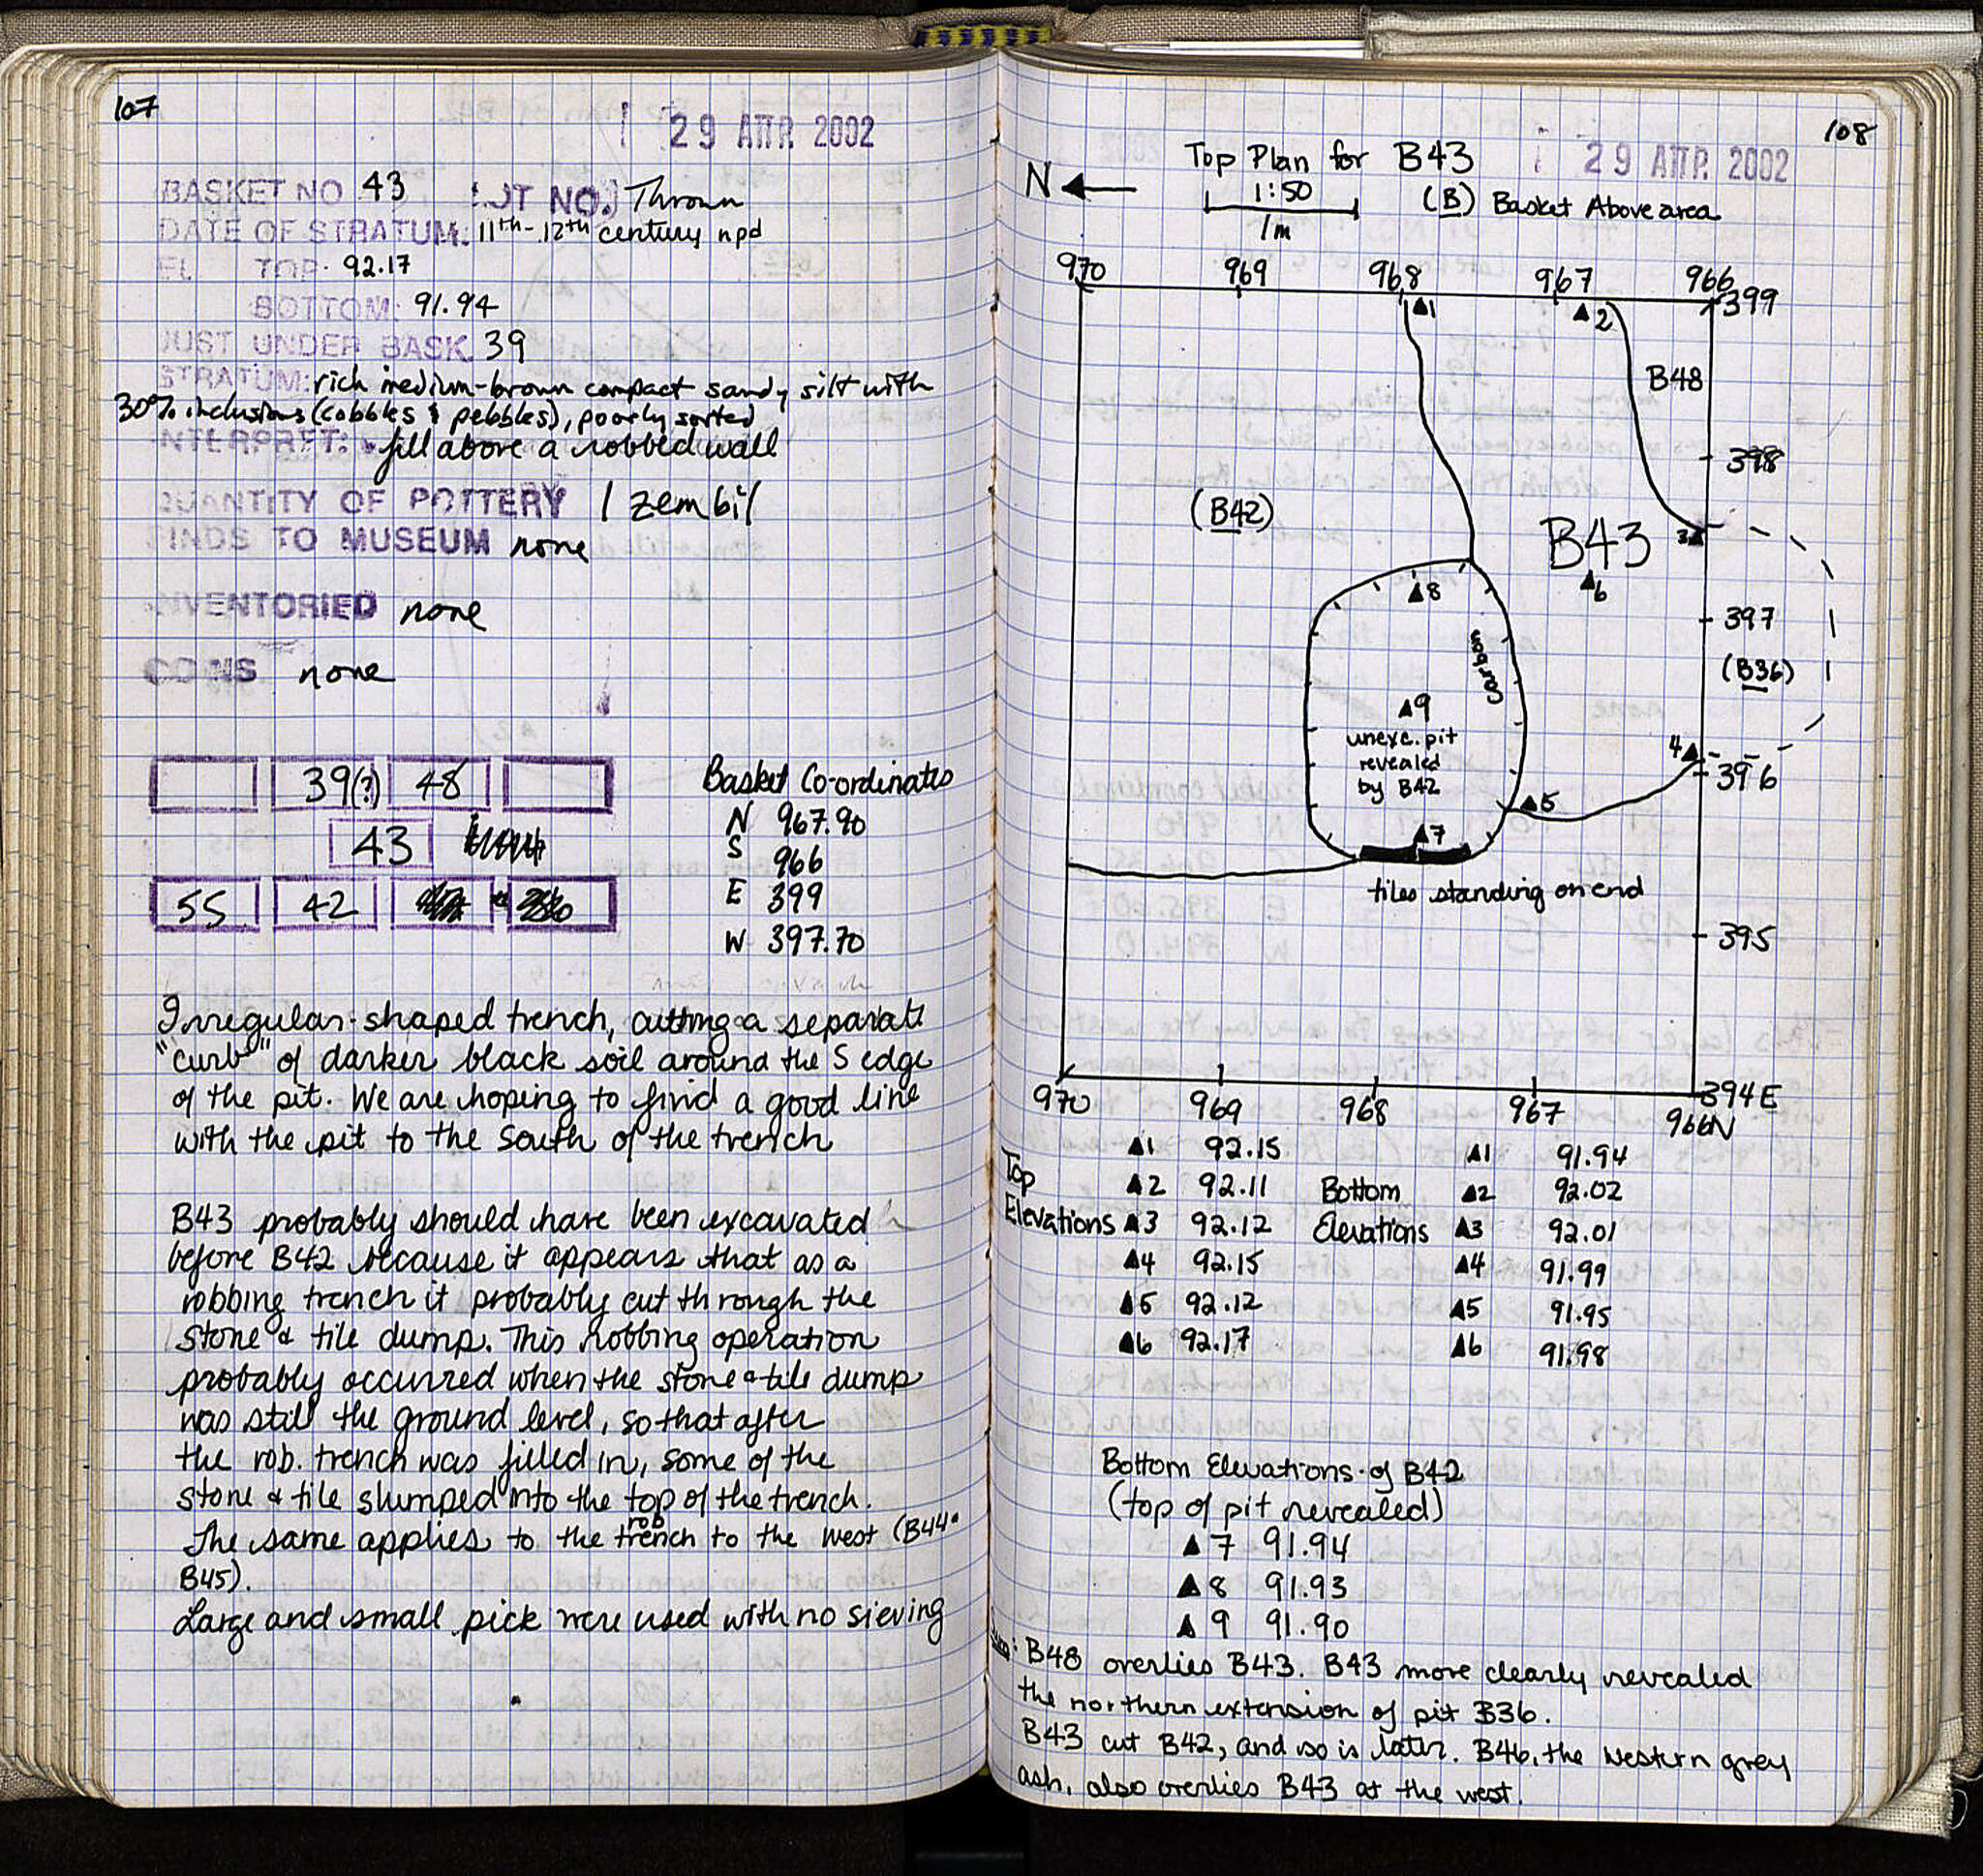 107
29 ΑΠΡ. 2002
BASKET NO 43 LOT NO. Thrown
DATE OF STRATUM: 11th-12th century npd
EL TOP: 92.17
BOTTOM: 91.94
JUST UNDER BASK. 39
STRATUM: rich medium-brown compact sandy silt with
30% inclusions (cobbles & pebbles), poorly sorted
INTERPRET: fill above a robbed wall
QUANTITY OF POTTERY 1 zembil
FINDS TO MUSEUM none
INVENTORIED none
CONS none
39(?) 48
43
55 42
Basket Co-ordinates
N 967.90
S 966
E 399
W 397.70
Irregular-shaped trench, cutting a separate
"curb" of darker black soil around the S edge
of the pit. We are hoping to find a good line
with the pit to the south of the trench
B43 probably should have been excavated
before B42 because it appears that as a
robbing trench it probably cut through the
stone & tile dump. This robbing operation
probably occurred when the stone & tile dump
was still the ground level, so that after
the rob. trench was filled in, some of the
stone & tile slumped into the top of the trench.
The same applies to the rob trench to the west (B44 &
B45).
Large and small pick were used with no sieving
108
29 ΑΠΡ. 2002
Top Plan for B43
N
1:50
1m
(B) Basket Above area
970 969 968 967 966
399
▲1
▲2
B48
398
(B42)
B43
3▲
▲6
▲8
397
carbon
(B36)
▲9
unexc. pit
revealed
by B42
4▲
396
▲5
▲7
tiles standing on end
395
394E
970 969 968 967 966N
Top
Elevations
▲1 92.15
▲2 92.11
▲3 92.12
▲4 92.15
▲5 92.12
▲6 92.17
Bottom
Elevations
▲1 91.94
▲2 92.02
▲3 92.01
▲4 91.99
▲5 91.95
▲6 91.98
Bottom Elevations of B42
(top of pit revealed)
▲7 91.94
▲8 91.93
▲9 91.90
B48 overlies B43. B43 more clearly revealed
the northern extension of pit B36.
B43 cut B42, and so is later. B46, the western grey
ash, also overlies B43 at the west.